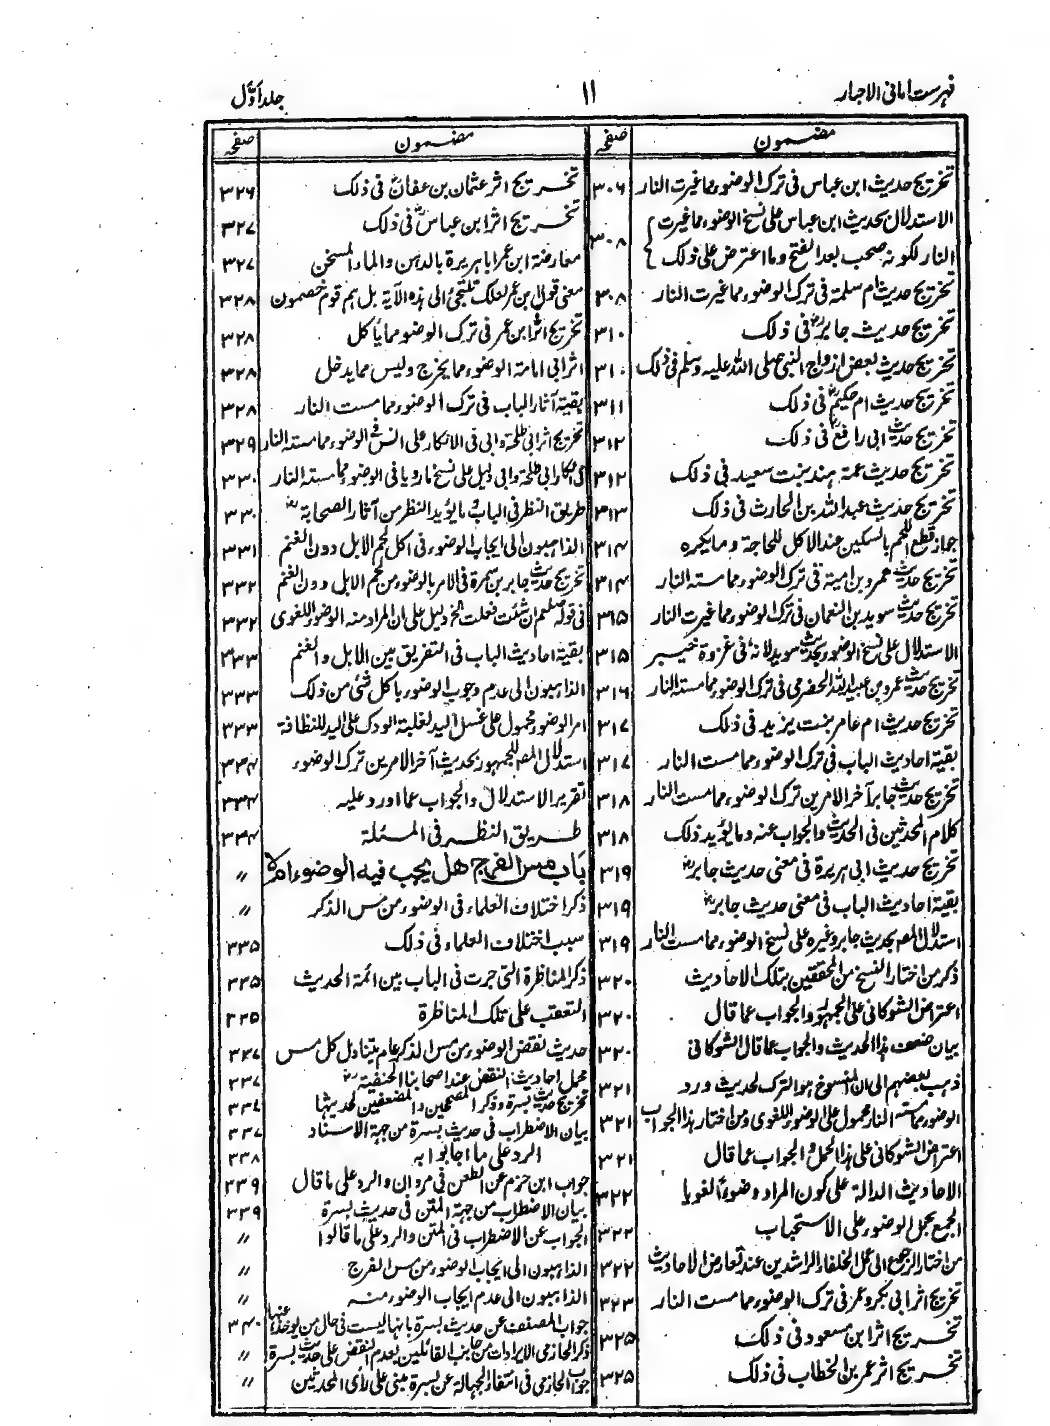 فہرست امانی الاحبار
۱۱
جلد اوّل
مضمون
صفحہ
تخریج حدیث ابن عباس فی ترک الوضوء مما غیرت النار ۳۰۶
الاستدلال بحدیث ابن عباس علی نسخ الوضوء مما غیرت
النار لکونہ صحب بعد الفتح وما اعترض علی ذلک ۳۰۸
تخریج حدیث ام سلمة فی ترک الوضوء مما غیرت النار ۳۰۸
تخریج حدیث جابرؓ فی ذلک ۳۱۰
تخریج حدیث بعض ازواج النبی صلی اللہ علیہ وسلم فی ذلک ۳۱۰
تخریج حدیث ام حکیمؓ فی ذلک ۳۱۱
تخریج حدیث ابی رافعؓ فی ذلک ۳۱۲
تخریج حدیث عمة ہند بنت سعید فی ذلک ۳۱۲
تخریج حدیث عبد اللہ بن الحارث فی ذلک ۳۱۳
جواز قطع اللحم بالسکین عند الاکل للحاجة وما یکرہ ۳۱۴
تخریج حدیث عمرو بن امیة فی ترک الوضوء مما مستہ النار ۳۱۴
تخریج حدیث سوید بن النعمان فی ترک الوضوء مما غیرت النار ۳۱۵
الاستدلال علی نسخ الوضوء بحدیث سوید لانہ فی غزوة خیبر ۳۱۵
تخریج حدیث عمرو بن عبید اللہ الحضرمی فی ترک الوضوء مما مستہ النار ۳۱۶
تخریج حدیث ام عامر بنت یزید فی ذلک ۳۱۷
بقیة احادیث الباب فی ترک الوضوء مما مست النار ۳۱۷
تخریج حدیث جابر آخر الامرین ترک الوضوء مما مست النار ۳۱۸
کلام المحدثین فی الحدیث والجواب عنہ وما یؤید ذلک ۳۱۸
تخریج حدیث ابی ہریرة فی معنی حدیث جابرؓ ۳۱۹
بقیة احادیث الباب فی معنی حدیث جابرؓ ۳۱۹
استدلال المصؒ بحدیث جابر وغیرہ علی نسخ الوضوء مما مست النار ۳۱۹
ذکر من اختار النسخ من المحققین بتلک الاحادیث ۳۲۰
اعتراض الشوکانی علی الجمہور والجواب عما قال ۳۲۰
بیان ضعف ہذا الحدیث والجواب عما قال الشوکانی ۳۲۰
ذہب بعضہم الی ان المنسوخ ہو الترک لحدیث ورد ۳۲۱
الوضوء مما مستہ النار محمول علی الوضوء اللغوی ومن اختار ہذا الجواب ۳۲۱
اعتراض الشوکانی علی ہذا الحمل والجواب عما قال ۳۲۱
الاحادیث الدالة علی کون المراد وضوءً لغویا ۳۲۲
الجمع بحمل الوضوء علی الاستحباب ۳۲۲
من اختار الرجوع الی عمل الخلفاء الراشدین عند تعارض الاحادیث ۳۲۲
تخریج اثر ابی بکر وعمر فی ترک الوضوء مما مست النار ۳۲۳
تخریج اثر ابن مسعود فی ذلک ۳۲۵
تخریج اثر عمر بن الخطاب فی ذلک ۳۲۵
مضمون
صفحہ
تخریج اثر عثمان بن عفان فی ذلک ۳۲۶
تخریج اثر ابن عباسؓ فی ذلک ۳۲۷
معارضة ابن عمر اباہریرة بالدہن والماء المسخن ۳۲۷
معنی قول ابن عمر لعلک تلتجئ الی ہذہ الآیة بل ہم قوم خصمون ۳۲۸
تخریج اثر ابن عمر فی ترک الوضوء مما یاکل ۳۲۸
اثر ابی امامة الوضوء مما یخرج ولیس مما یدخل ۳۲۸
بقیة آثار الباب فی ترک الوضوء مما مست النار ۳۲۸
تخریج اثر ابی طلحة وابی فی الانکار علی انس فی الوضوء مما مستہ النار ۳۲۹
فی انکار ابی طلحة وابی دلیل علی نسخ ما رویا فی الوضوء مما مستہ النار ۳۳۰
طریق النظر فی الباب وما یؤید النظر من آثار الصحابةؓ ۳۳۰
الذاہبون الی ایجاب الوضوء فی اکل لحم الابل دون الغنم ۳۳۱
تخریج حدیث جابر بن سمرة فی الامر بالوضوء من لحم الابل دون الغنم ۳۳۲
فی قولہ صلعم ان شئت فعلت الخ دلیل علی ان المراد منہ الوضوء اللغوی ۳۳۲
بقیة احادیث الباب فی التفریق بین الابل والغنم ۳۳۳
الذاہبون الی عدم وجوب الوضوء باکل شئ من ذلک ۳۳۳
امر الوضوء محمول علی غسل الید لغلبة الودک علی الید للنظافة ۳۳۳
استدلال المصؒ للجمہور بحدیث آخر الامرین ترک الوضوء ۳۳۴
تقریر الاستدلال والجواب عما اورد علیہ ۳۳۴
طریق النظر فی المسئلة ۳۳۴
باب مس الفرج هل یجب فیه الوضوء ام لا 〃
ذکر اختلاف العلماء فی الوضوء من مس الذکر 〃
سبب اختلاف العلماء فی ذلک ۳۳۵
ذکر المناظرة التی جرت فی الباب بین ائمة الحدیث ۳۳۵
التعقب علی تلک المناظرة ۳۳۵
حدیث نقض الوضوء من مس الذکر عام یتناول کل مس ۳۳۷
محمل احادیث النقض عند اصحابنا الحنفیةؒ ۳۳۷
تخریج حدیث بسرة وذکر المصححین والمضعفین لحدیثہا ۳۳۷
بیان الاضطراب فی حدیث بسرة من جہة الاسناد ۳۳۷
الرد علی ما اجابوا بہ ۳۳۸
جواب ابن حزم عن الطعن فی مروان والرد علی ما قال ۳۳۹
بیان الاضطراب من جہة المتن فی حدیث بسرة ۳۳۹
الجواب عن الاضطراب فی المتن والرد علی ما قالوا 〃
الذاہبون الی ایجاب الوضوء من مس الفرج 〃
الذاہبون الی عدم ایجاب الوضوء منہ 〃
جواب المصنف عن حدیث بسرة بانہا لیست فی حال من یؤخذ عنہا ۳۴۰
ذکر الحازمی الایرادات من جانب القائلین بعدم النقض علی حدیث بسرة 〃
جواب الحازمی فی انتفاء الجہالة عن بسرة مبنی علی رأی المحدثین 〃